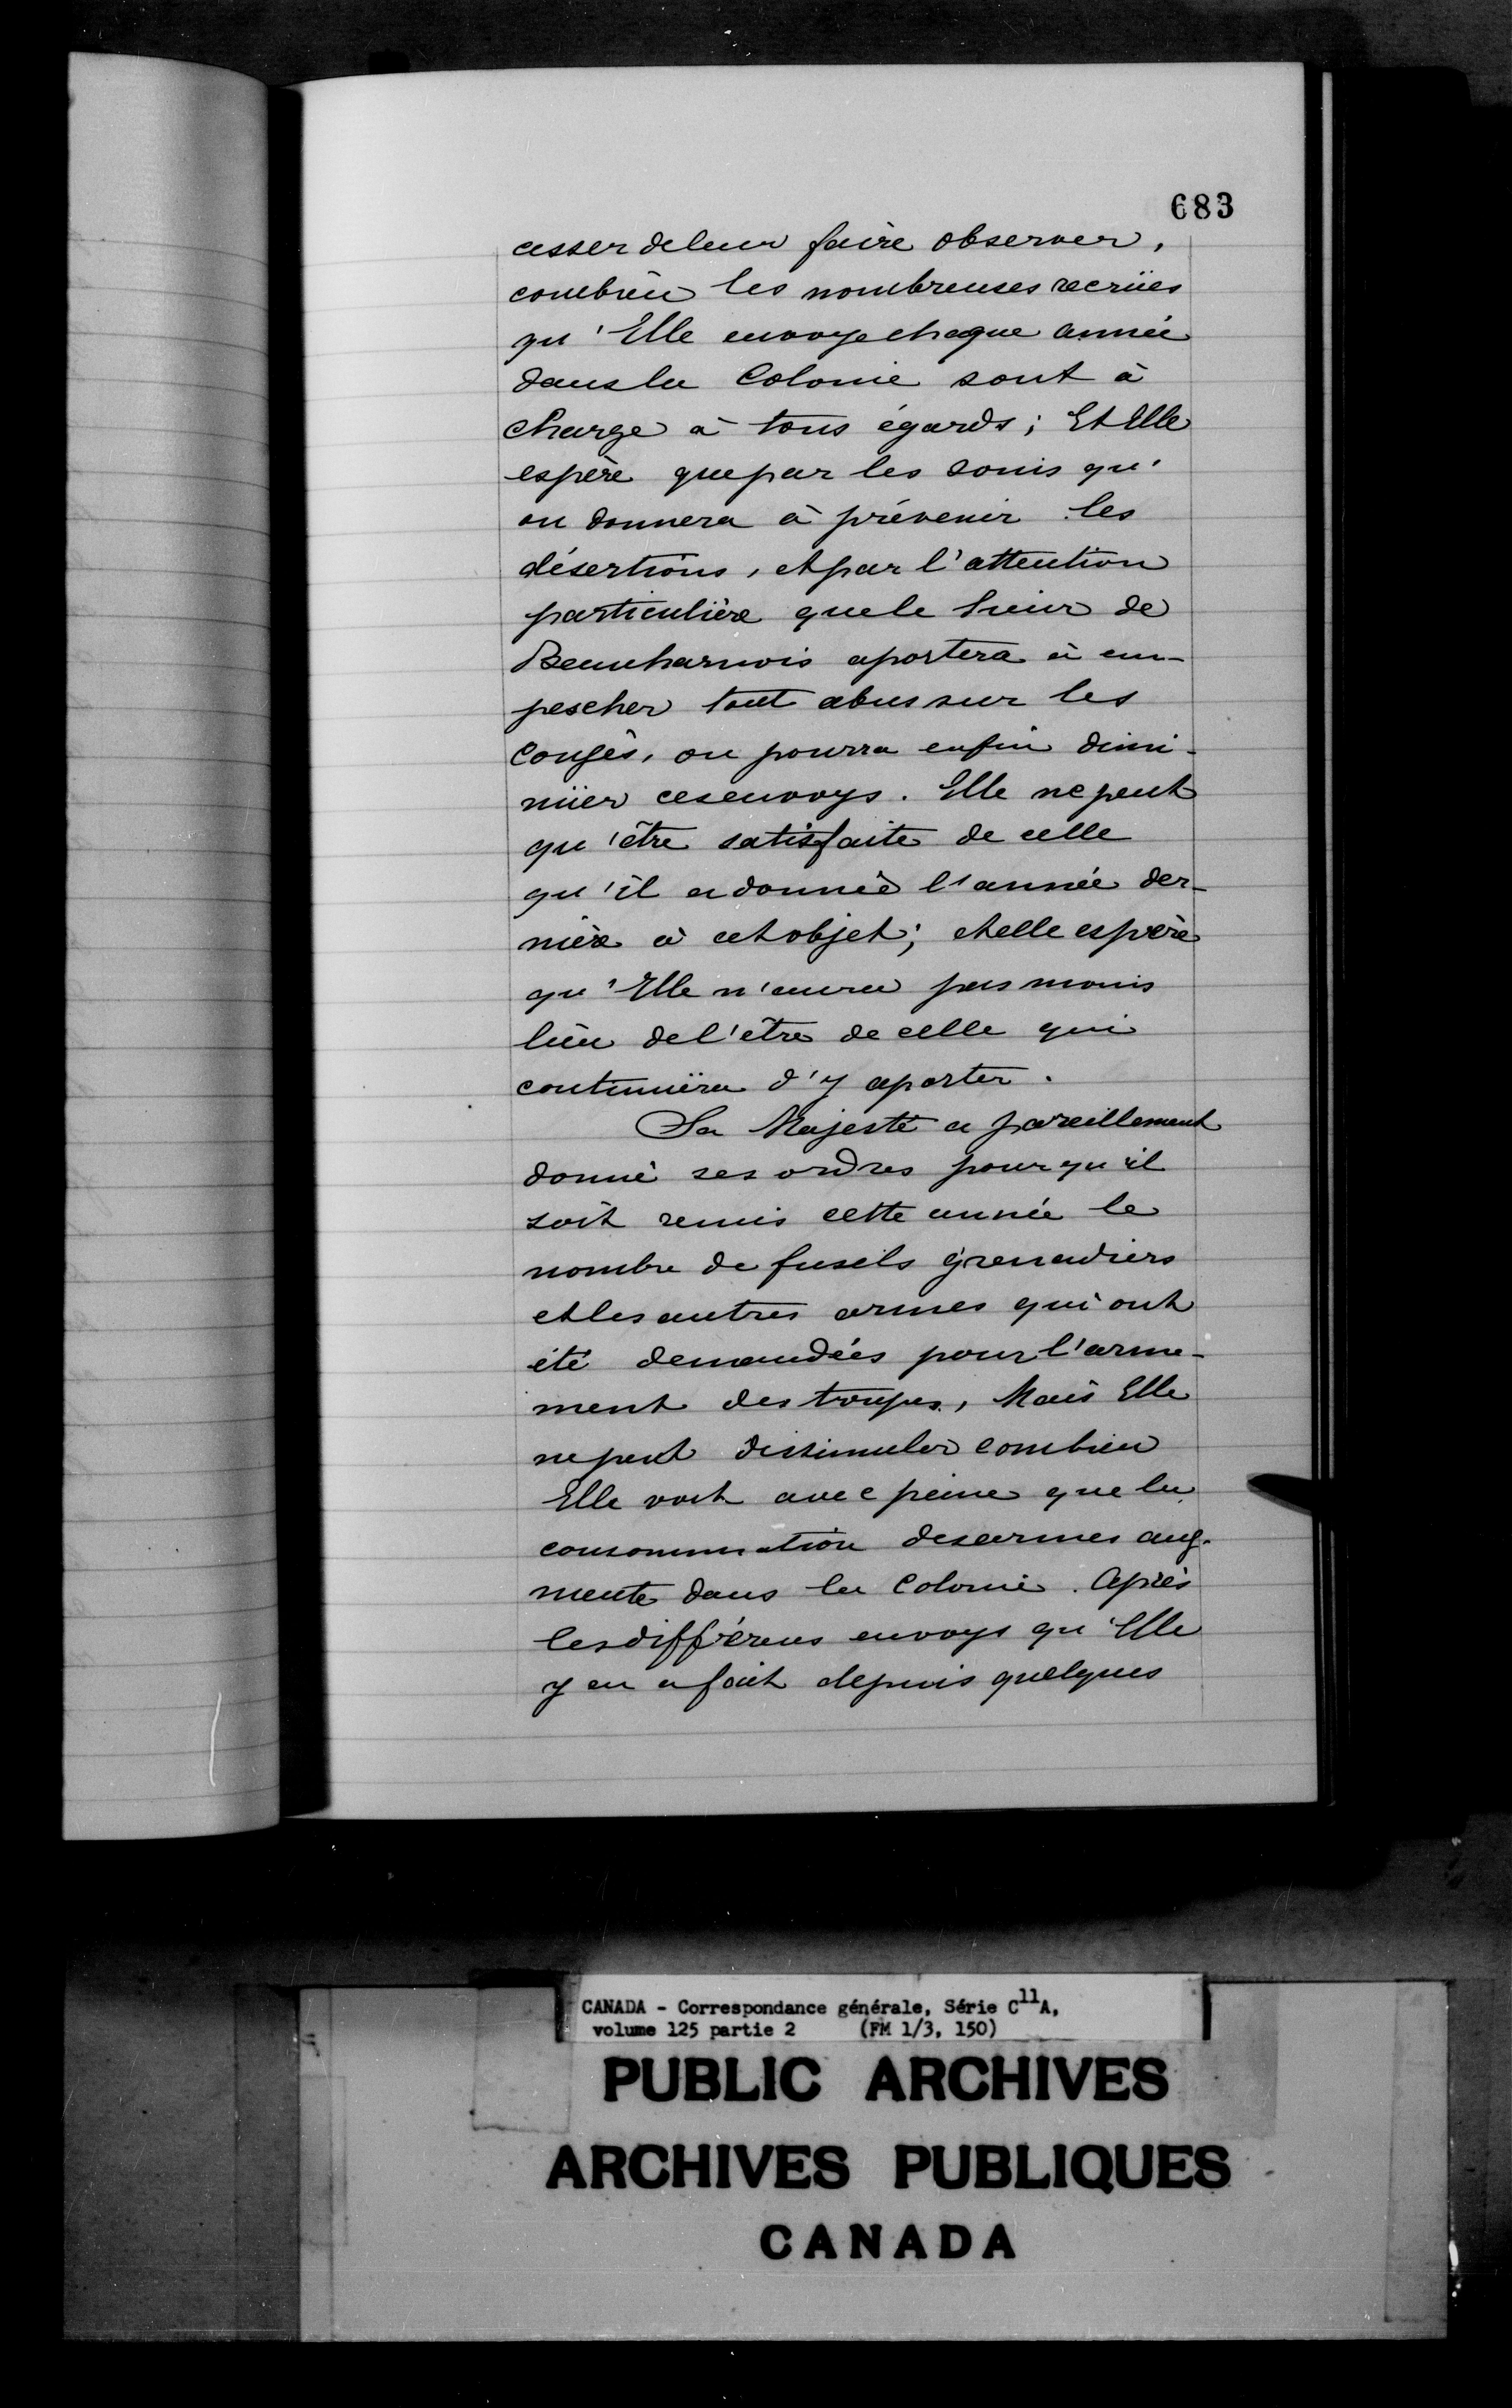 683
cesser de leur faire observer,
combien les nombreuses recrües
qu'Elle envoye chaque année
dans la Colonie sont à
charge à tous égards; Et Elle
espère que par les soins qu'
on donnera à prévenir les
désertions, et par l'attention
particulière que le Sieur de
Beauharnois aportera à em-
pescher tout abus sur les
Congés, on pourra enfin dimi-
nüer ces envoys. Elle ne peut
qu'être satisfaite de celle
qu'il a donnée l'année der-
nière à cet objet; et elle espère
qu'Elle n'aura pas moins
lieu de l'être de celle qui
continüera d'y aporter.
Sa Majesté a pareillement
donné ses ordres pour qu'il
soit remis cette année le
nombre de fusils grenadiers
et les autres armes qui ont
été demandées pour l'arme-
ment des troupes, Mais Elle
ne peut dissimuler combien
Elle voit avec peine que la
consommation des armes aug-
mente dans la Colonie. Après
les différens envoys qu'Elle
y en a fait depuis quelques
CANADA - Correspondance générale, Série C11A,
volume 125 partie 2 (FM 1/3, 150)
PUBLIC ARCHIVES
ARCHIVES PUBLIQUES
CANADA